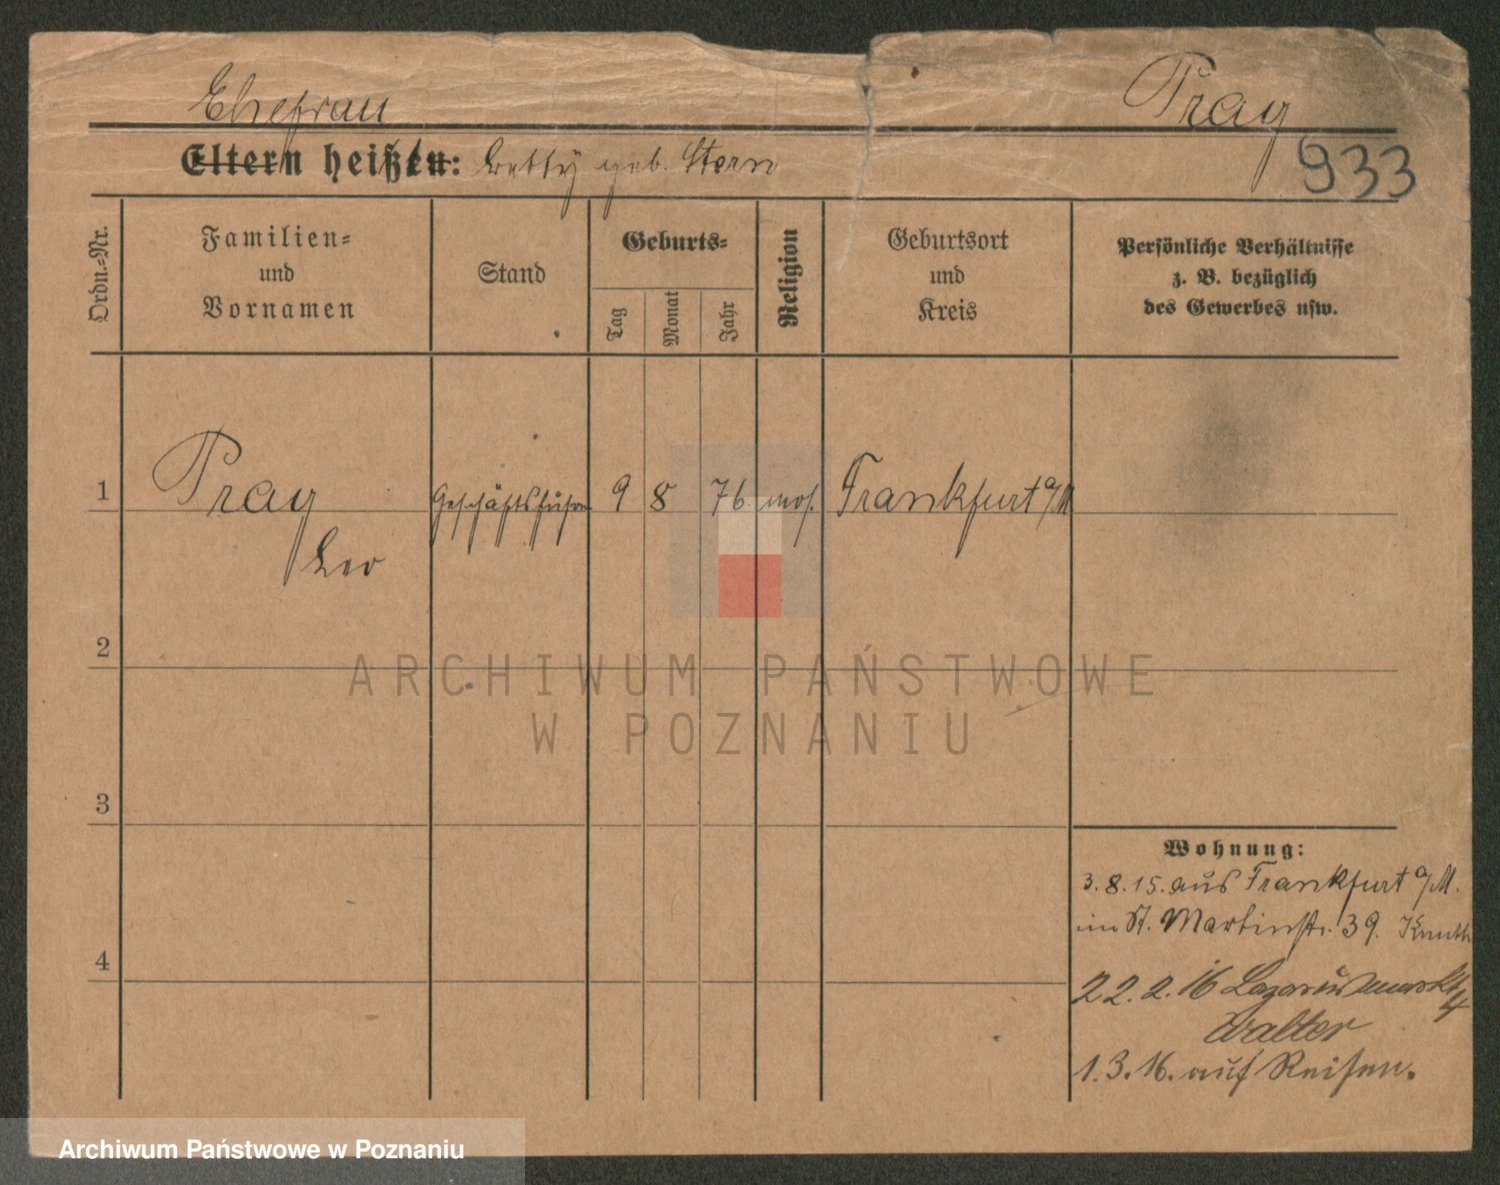 Ehefrau
Prag
Eltern heißen: Betty geb. Stern
933
Ordn.-Nr.
Familien-
und
Vornamen
Stand
Geburts-
Tag
Monat
Jahr
Religion
Geburtsort
und
Kreis
Persönliche Verhältnisse
z. B. bezüglich
des Gewerbes usw.
1
Prag
Leo
Geschäftsführer
9
8
76
mos.
Frankfurt a/M
2
ARCHIWUM PAŃSTWOWE
W POZNANIU
3
4
Wohnung:
3.8.15. aus Frankfurt a/M.
in St. Martinstr. 39.
22.2.16
Walter
1.3.16. auf Reisen.
Archiwum Państwowe w Poznaniu